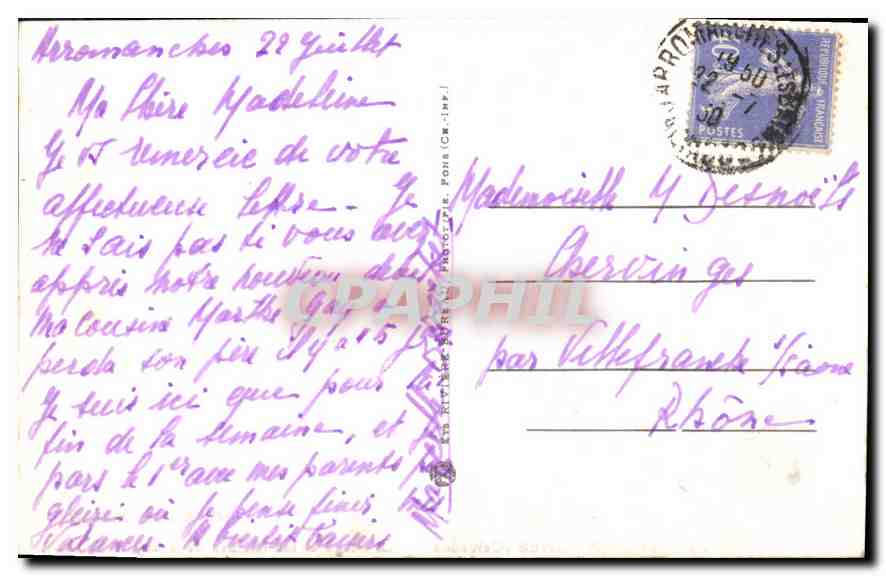 Arromanches 22 Juillet
Ma Chère Madeleine
Je remercie de votre
affectueuse lettre - Je
ne sais pas si vous avez
appris notre nouveau deuil
ma cousine Marthe
perdu son père il y a 15
Je suis ici que pour la
fin de la semaine, et je
pars le 1er avec mes parents
où je pense finir
Vacances - A bientôt baisers
ETS RIVIÈRE BUREAU PHOTOTYPIE. FONS (CH.-INF.)
ARROMANCHES-LES-BAINS
CALVADOS
19 50
22 - 7
30
RÉPUBLIQUE FRANÇAISE
POSTES
Mademoiselle M Desnoëls
Chervinges
par Villefranche s/Saone
Rhône
CPAPHIL